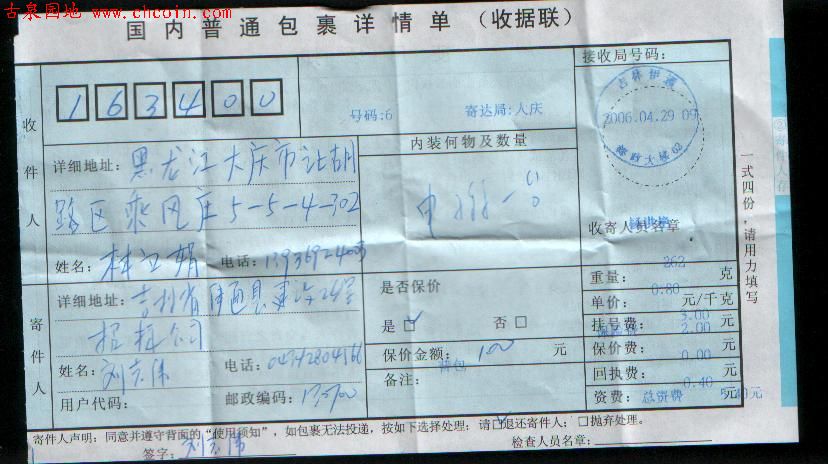 古泉园地 www.chcoin.com
国内普通包裹详情单（收据联）
接收局号码：
163400
号码:6 寄达局:人庆
吉林伊通
2006.04.29 09
收件人
详细地址：黑龙江大庆市让胡
路区乘风庄5-5-4-302
姓名：林江娟 电话：
内装何物及数量
收寄人员名章
寄件人
详细地址：吉林省伊通县
姓名：刘志伟 电话：
用户代码： 邮政编码：
是否保价
是☑ 否□
保价金额：100 元
备注：
重量：262 克
单价：0.80 元/千克
挂号费：3.00 元
2.00
保价费：0.00 元
回执费：元
0.40
资费：总资费 元
寄件人声明：同意并遵守背面的“使用须知”，如包裹无法投递，按如下选择处理：请☑退还寄件人；□抛弃处理。
签字：刘志伟 检查人员名章：
一式四份，请用力填写
②寄件人存